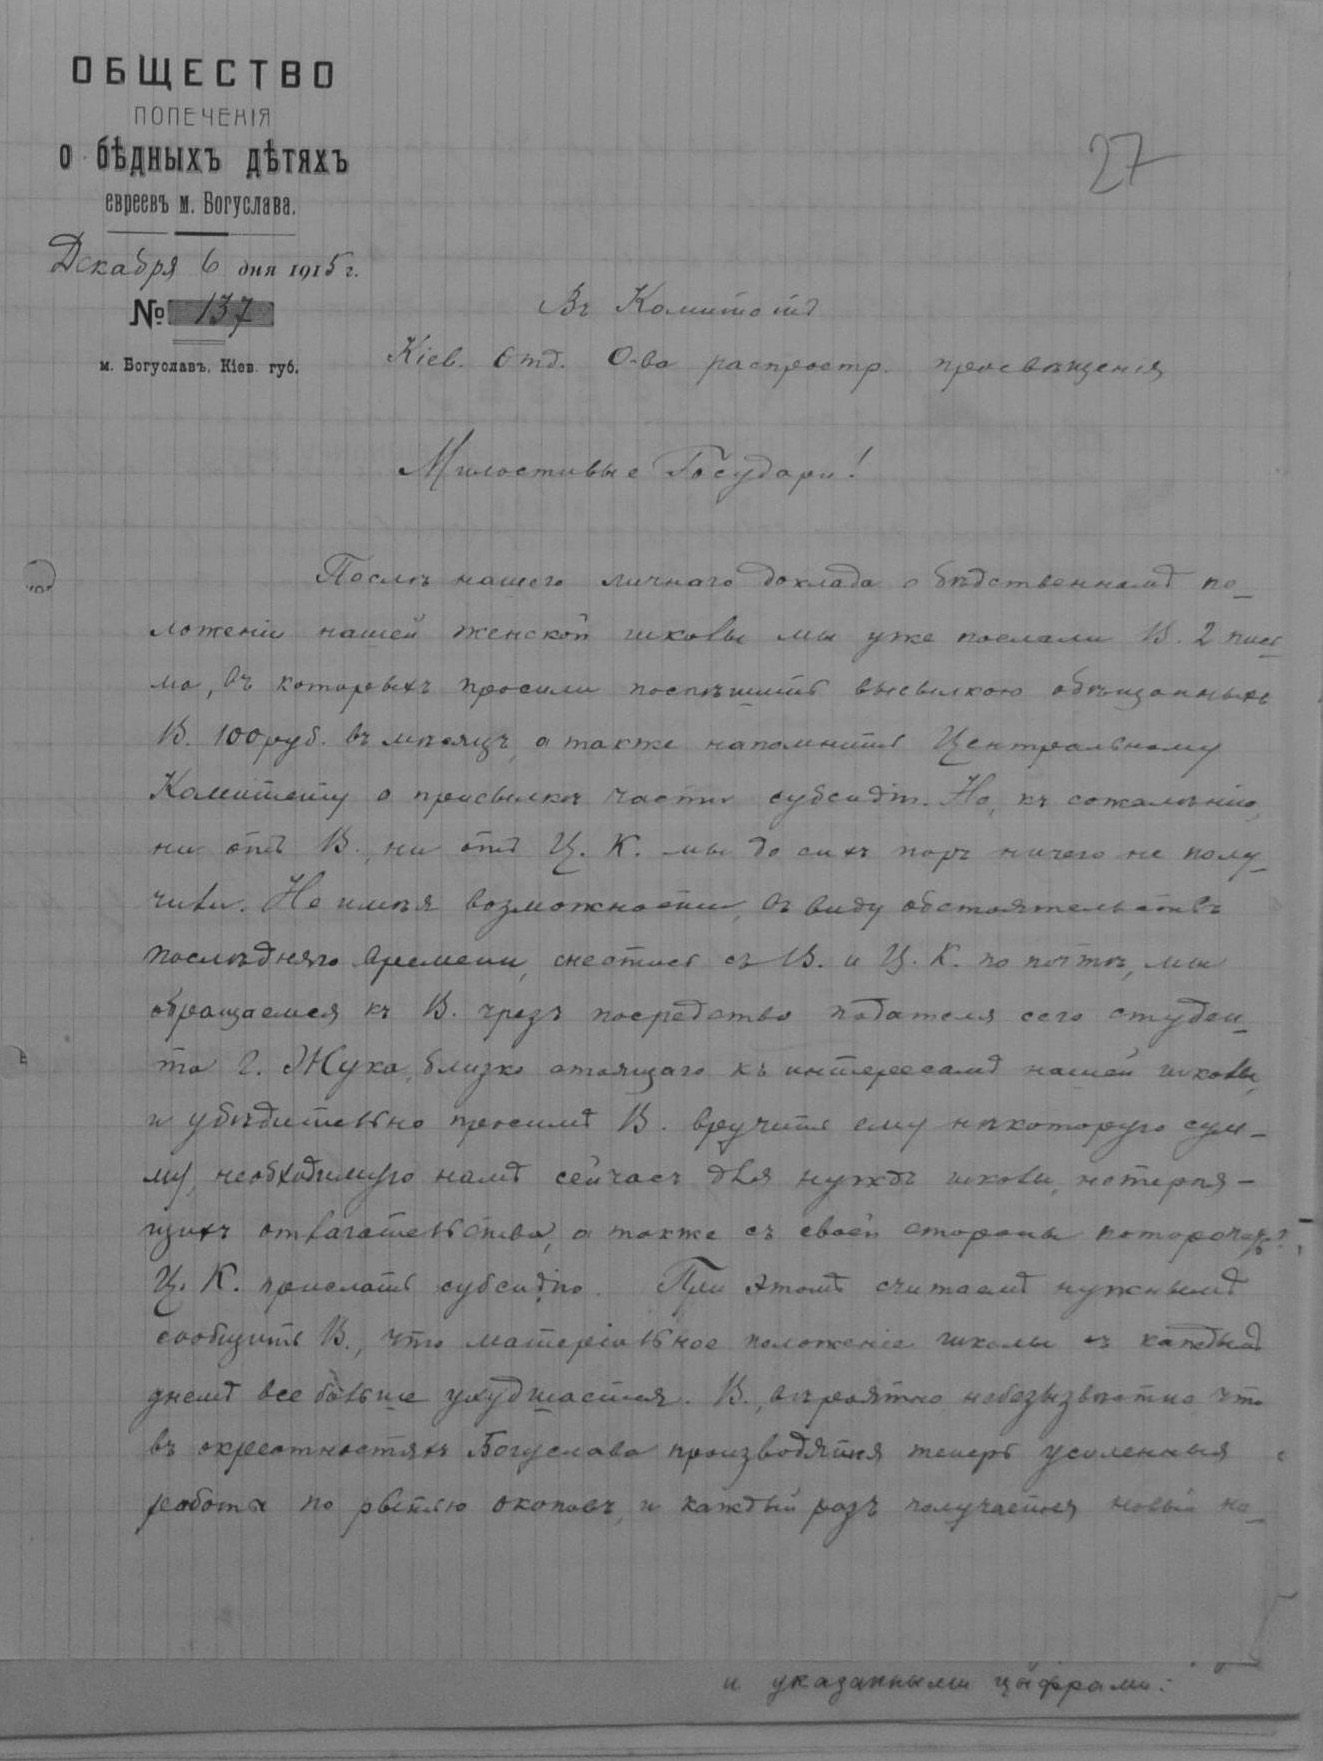 ОБЩЕСТВО
ПОПЕЧЕНІЯ
о бѣдныхъ дѣтяхъ
евреевъ м. Богуслава.
Декабря 6 дня 1915 г.
№ 137
м. Богуславъ, Кіев. губ.
27
Въ Комитетъ
Кіев. Отд. О-ва распростр. просвѣщенія
Милостивые Государи!
Послѣ нашего личнаго доклада о бѣдственномъ по-
ложеніи нашей женской школы мы уже послали В. 2 пись-
ма, въ которыхъ просили поспѣшить высылкою обѣщанныхъ
В. 100 руб. въ мѣсяцъ, а также напомнить Центральному
Комитету о присылкѣ части субсидіи. Но, къ сожалѣнію,
ни отъ В., ни отъ Ц. К. мы до сихъ поръ ничего не полу-
чили. Не имѣя возможности, въ виду обстоятельствъ
послѣдняго времени, снестись съ В. и Ц. К. по почтѣ, мы
обращаемся къ В. чрезъ посредство подателя сего студен-
та г. Жука, близко стоящаго къ интересамъ нашей школы,
и убѣдительно просимъ В. вручить ему нѣкоторую сум-
му, необходимую намъ сейчасъ для нуждъ школы, нетерпя-
щихъ отлагательства, а также съ своей стороны
Ц. К. прислать субсидію. При этомъ считаемъ нужнымъ
сообщить В., что матеріальное положеніе школы съ каждымъ
днемъ все больше ухудшается. В., вѣроятно небезызвѣстно что
въ окрестностяхъ Богуслава производятся теперь усиленныя
работы по рытью окоповъ, и каждый разъ получается новый на-
и указанными цифрами: